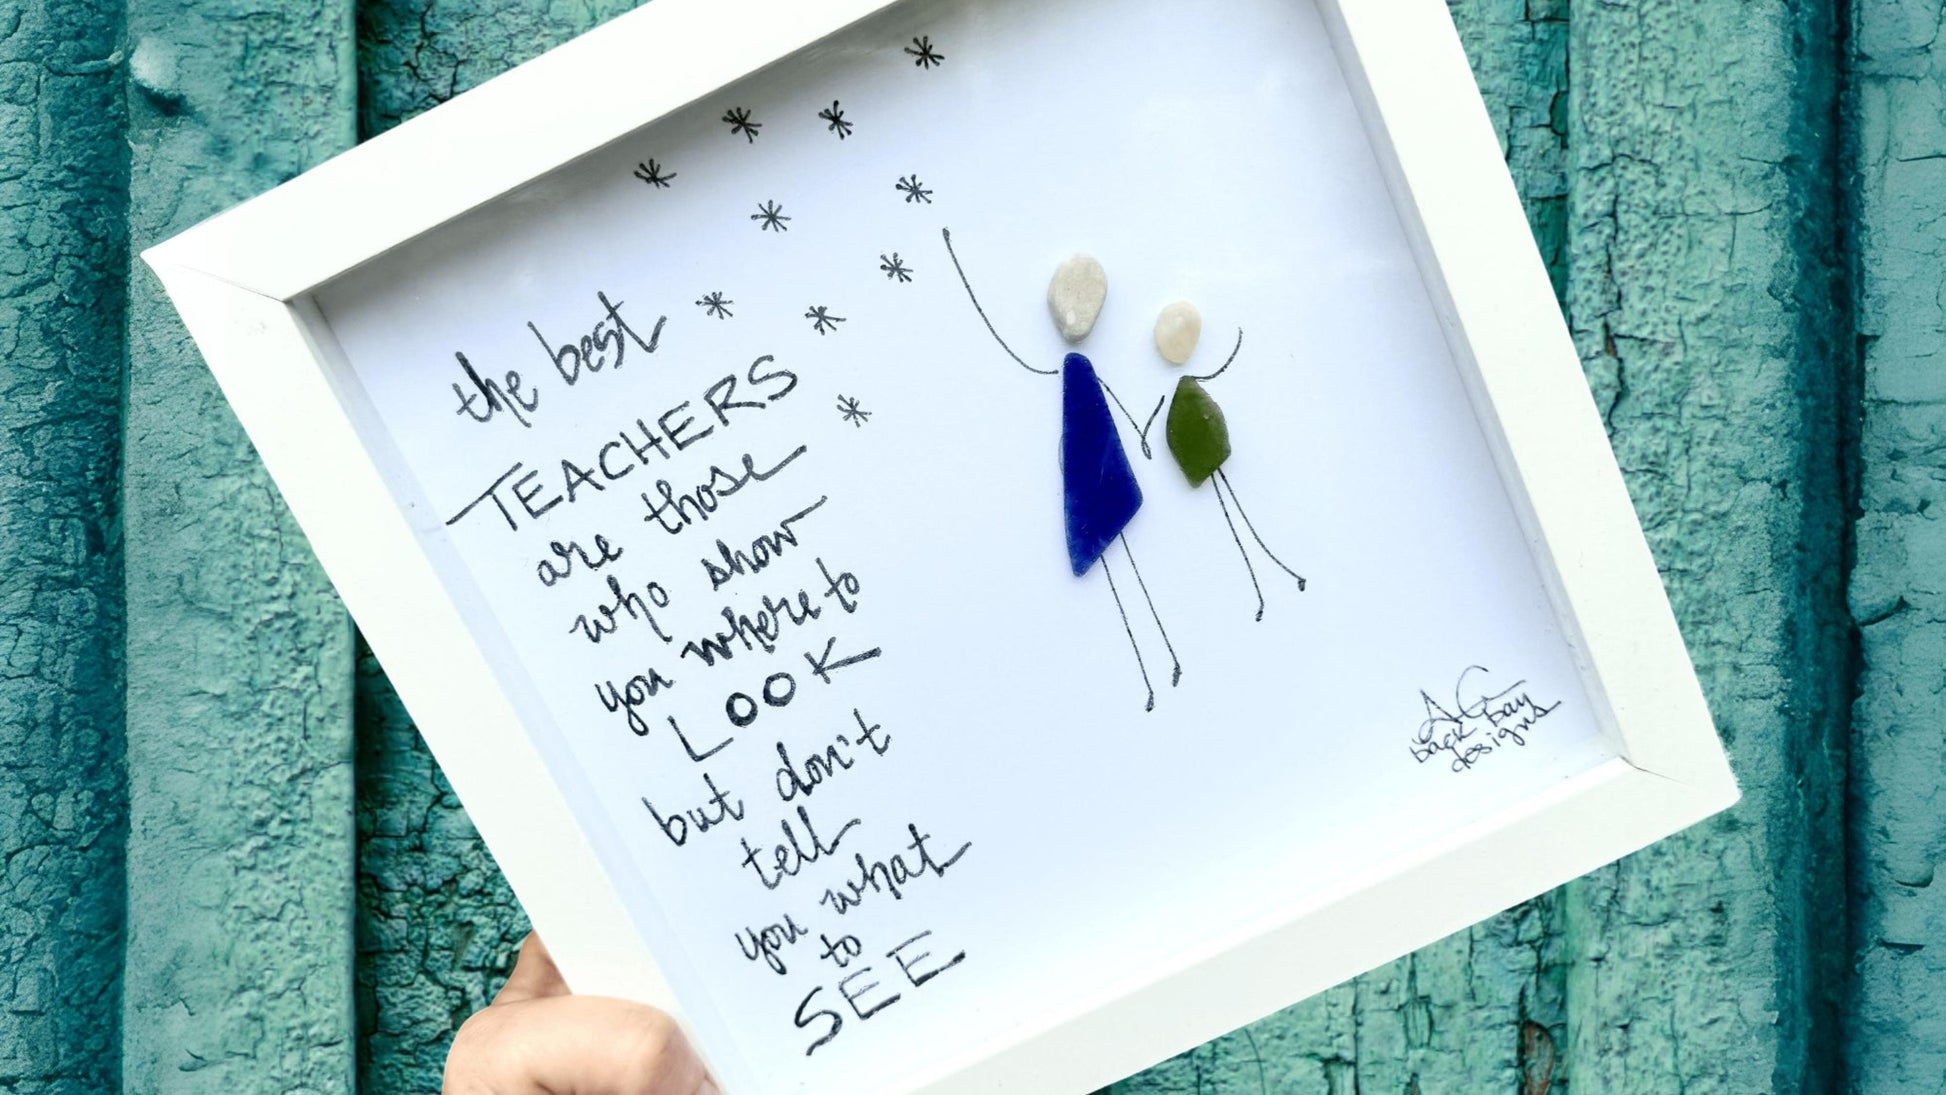 the best
TEACHERS
are those
who show
you where to
LOOK
but don't
tell
you what
to
SEE
AG
back bay
designs